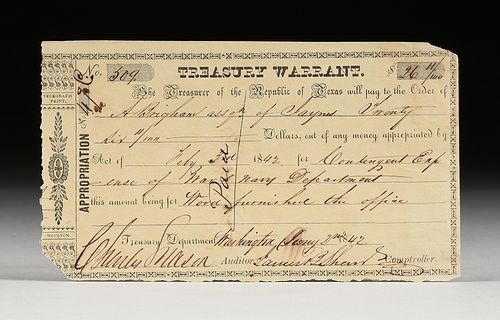 No. 309 TREASURY WARRANT. $26 11/100
TELEGRAPH PRINT,
HOUSTON.
APPROPRIATION
The Treasurer of the Republic of Texas will pay to the Order of
A Brigham assge of Sayres Twenty
Six 11/100 Dollars, out of any money appropriated by
Act of Feby 3d 1842 for Contingent Exp
ense of War & Navy Department
this amount being for Wood furnished the office
Paid
Treasury Department, Washington, 1842
Charles Mason Auditor James B Shaw Comptroller.